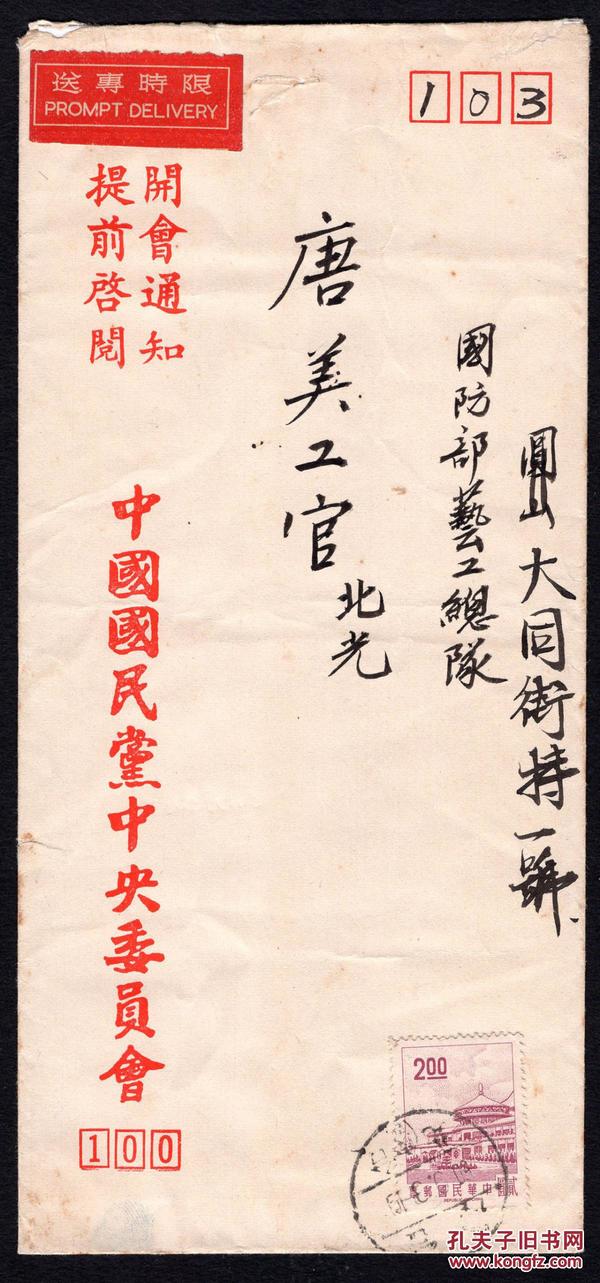 限時專送
PROMPT DELIVERY
103
圓山大同街特一號
國防部藝工總隊
唐美工官北光
開會通知
提前啓閱
中國國民黨中央委員會
100
2.00
中華民國郵票
貳圓
孔夫子旧书网
www.kongfz.com